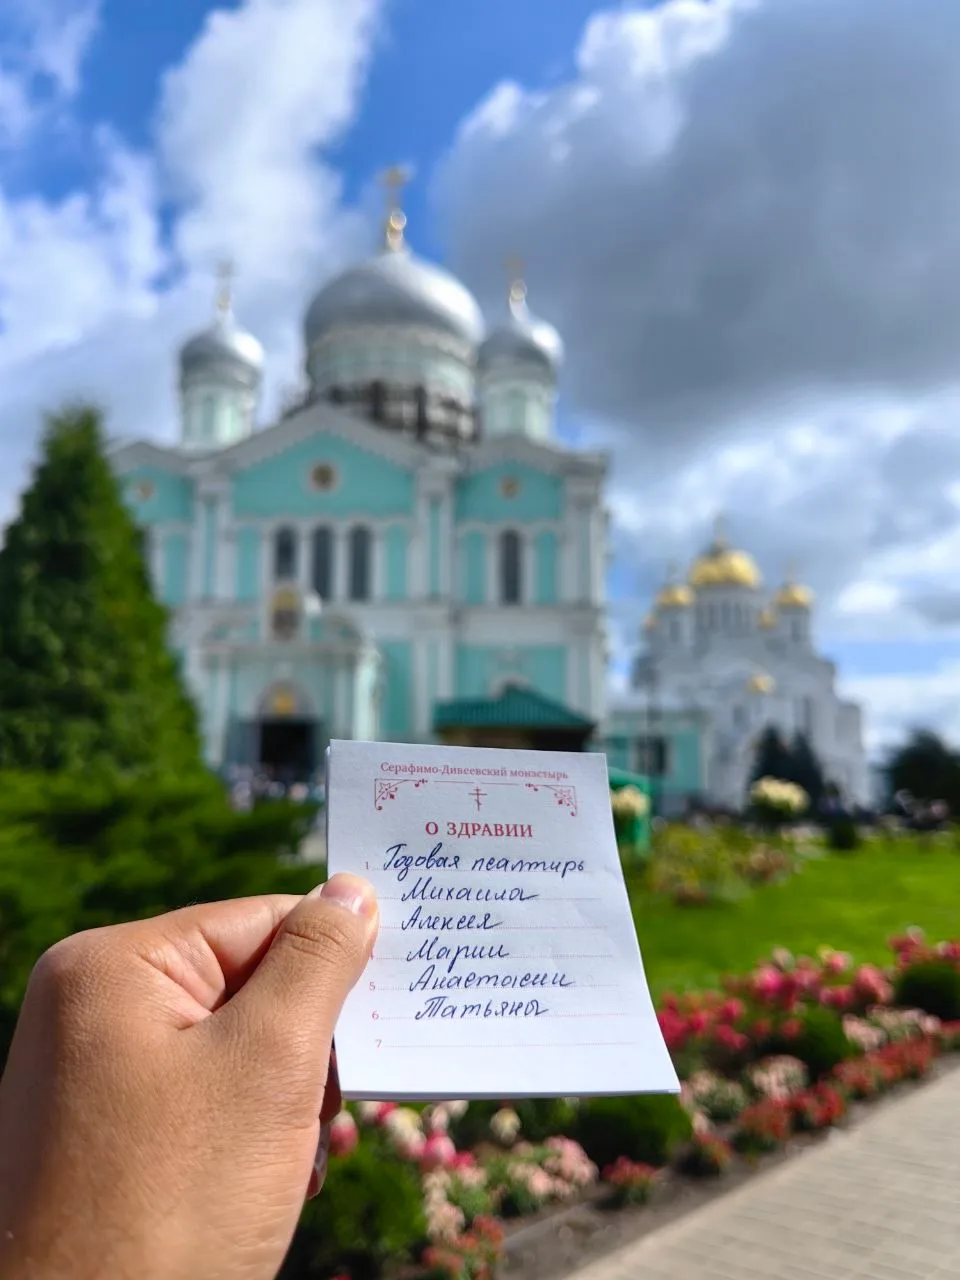 Серафимо-Дивеевский монастырь
О ЗДРАВИИ
1 Годовая псалтирь
Михаила
Алексея
4 Марии
5 Анастасии
6 Татьяны
7